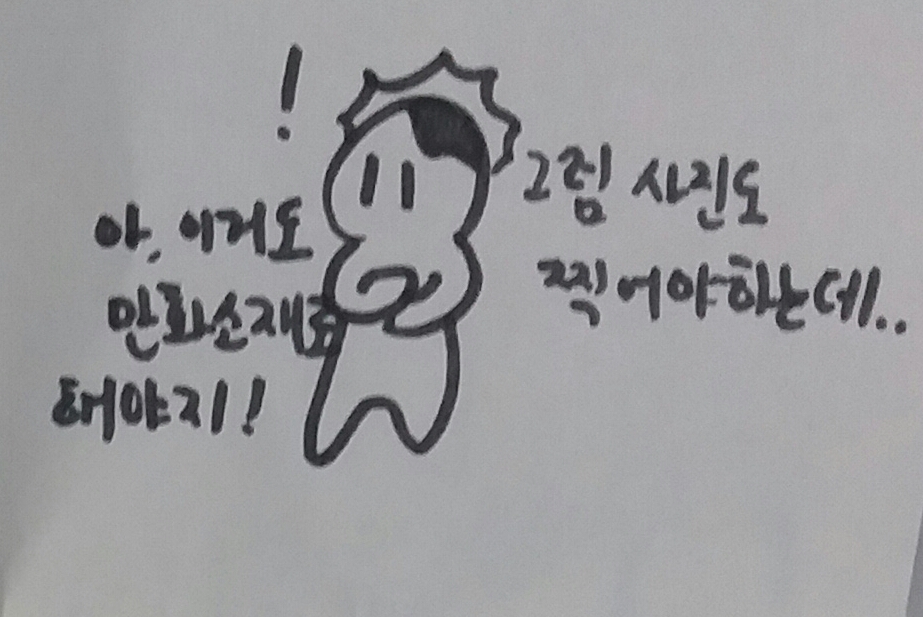 !
아, 이거도
만화소재로
해야지!
그림 사진도
찍어야하는데..